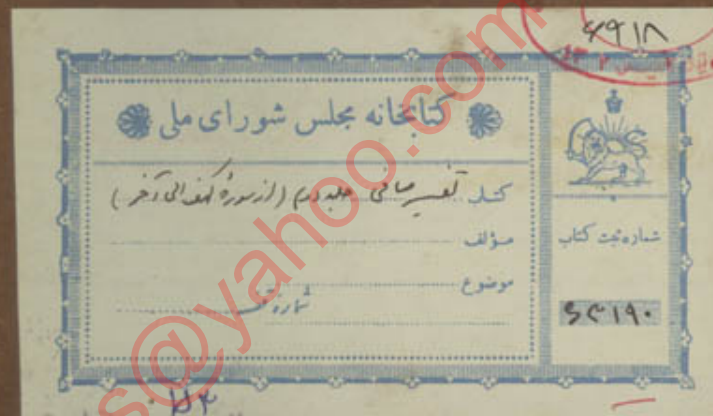 ۶۹۱۸
کتابخانه مجلس شورای ملی
کتاب تفسیر صافی جلد دوم (از سورهٔ کهف الی آخر)
مؤلف
موضوع
شماره قفسه
شماره ثبت کتاب
۶۳۱۹۰
s@yahoo.com